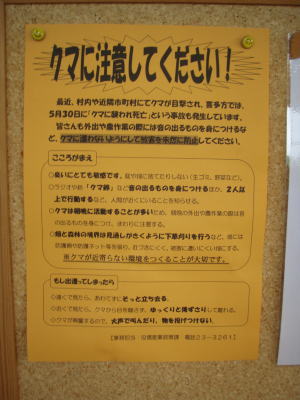 クマに注意してください！
最近、村内や近隣市町村にてクマが目撃され、喜多方では、
5月30日に「クマに襲われ死亡」という事故も発生しています。
皆さんも外出や農作業の際には音の出るものを身につけるな
ど、クマに遭わないようにして被害を未然に防止してください。
こころがまえ
○臭いにとても敏感です。庭や畑に捨てたりしない（生ゴミ、野菜など）。
○ラジオや鈴「クマ鈴」など音の出るものを身につけるほか、2人以
上で行動するなど、人間が近くにいることを知らせる。
○クマは朝晩に活動することが多いため、朝晩の外出や農作業の際は音
の出るものを身につけ、まわりに注意する。
○畑と森林の境界は見通しがきくように下草刈りを行うなど、畑には
防護柵や防護ネット等を張り、近づきにくく、被害に遭いにくい畑にする。
※クマが近寄らない環境をつくることが大切です。
もし出遭ってしまったら
○遠くで見たら、あわてずにそっと立ち去る。
○近くで見たら、クマから目を離さず、ゆっくりと後ずさりして離れる。
○クマが興奮するので、大声で叫んだり、物を投げつけない。
電話23－3261】